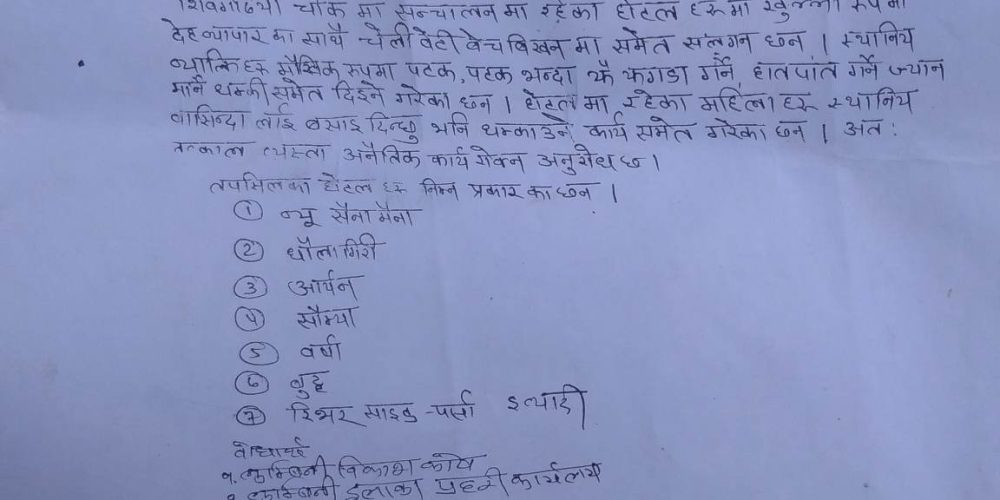 शिवगढीया चोक मा सन्चालन मा रहेका होटल हरूमा खुल्ला रूपमा
देह व्यापार का साथै चेली वेटी वेच बिखन मा समेत सलंगन छन ।  स्थानिय
व्याक्ति हरू मौखिक रूपमा पटक, पटक भन्दा कै झगडा गर्ने, हातपात गर्ने ज्यान
मार्ने धम्की समेत दिइने गरेका छन । होटल मा रहेका महिला हरू स्थानिय
वासिन्दा लाई वसाइ दिन्छु भनि धम्काउने कार्य समेत गरेका छन । अत :
तत्काल त्यस्ता अनैतिक कार्य रोक्न अनुरोध छ ।
तपसिलका होटल हरू निम्न प्रकार का छन ।
① न्यू सैनामैना
② धौलागिरी
③ आर्यन
④ सौम्या
⑤ वर्षा
⑥ बुद्ध
⑦ रिभर साइड -पर्सा इत्यादी
वोधार्थ
१. लुम्बिनी विकाश कोष
२. लुम्बिनी इलाका प्रहरी कार्यलय